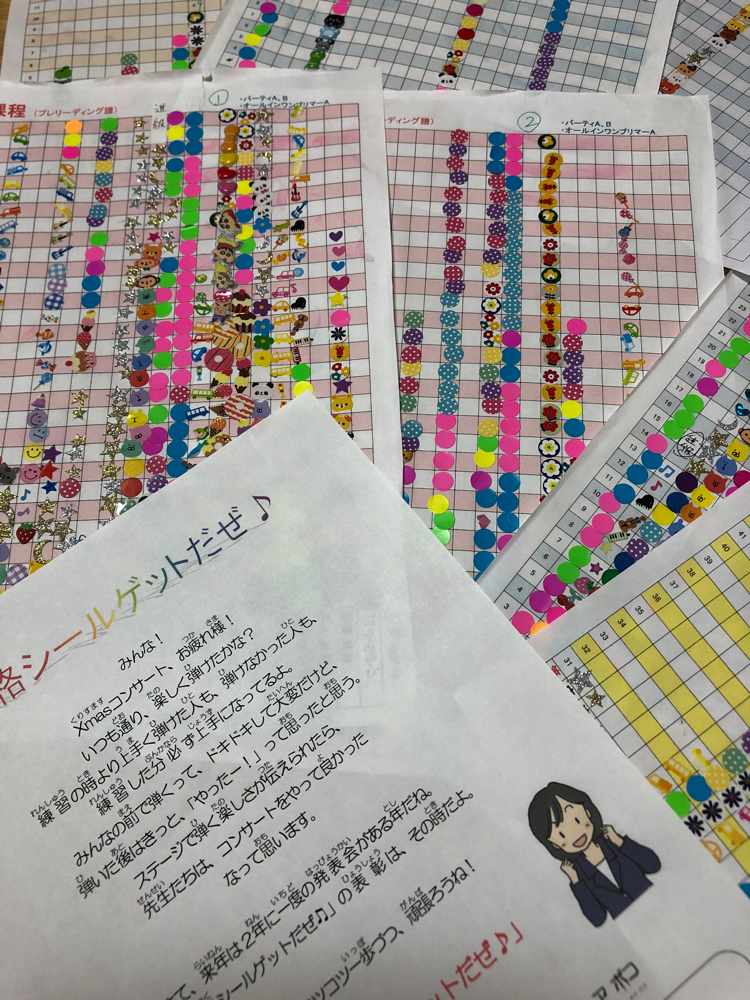 課程（プレリーディング譜）
進級
①
・パーティA、B
・オールインワンプリマーA
ディング譜）
②
・パーティA、B
・オールインワンプリマーA
格シールゲットだぜ♪
みんな！
Xmasコンサート、お疲れ様！
いつも通り、楽しく弾けたかな？
練習の時より上手く弾けた人も、弾けなかった人も、
練習した分必ず上手になってるよ。
みんなの前で弾くって、ドキドキして大変だけど、
弾いた後はきっと、「やったー！」って思ったと思う。
ステージで弾く楽しさが伝えられたら、
先生たちは、コンサートをやって良かった
なって思います。
て、来年は2年に一度の発表会がある年だね。
シールゲットだぜ♫」の表彰は、その時だよ。
コツコツ一歩づつ、頑張ろうね！
だぜ♪」
ア ポコ
23
22
21
20
19
18
17
16
15
14
13
12
11
10
9
8
7
6
5
4
3
31
32
33
34
35
36
37
38
39
40
41